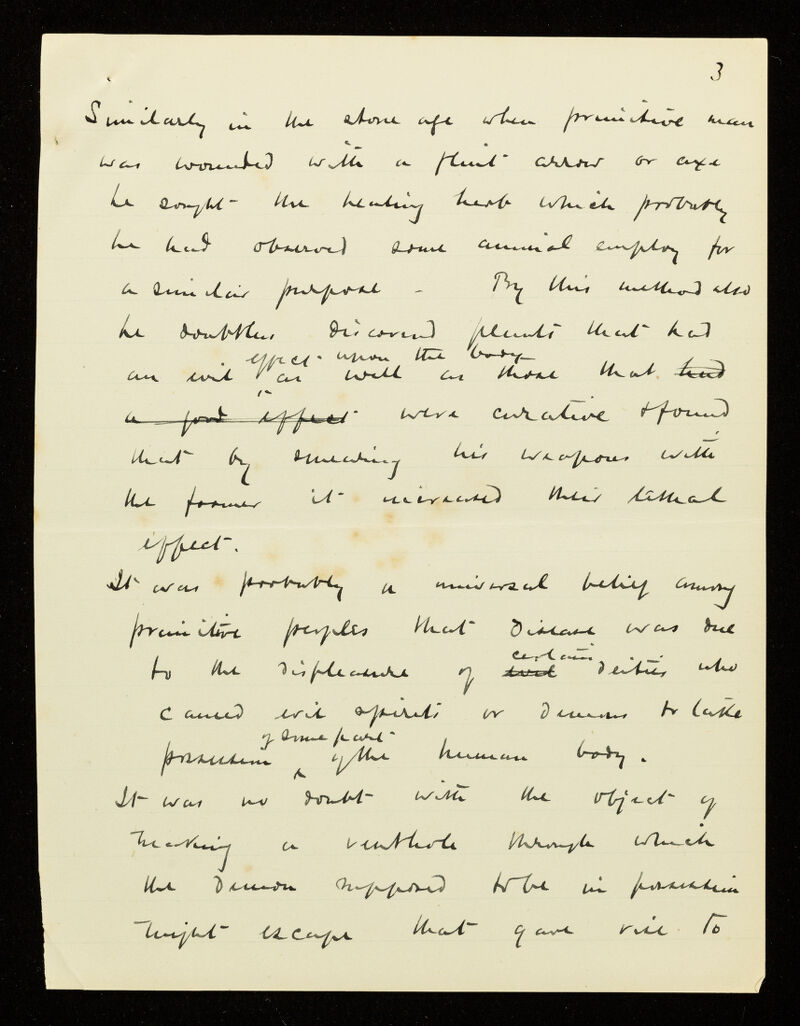 3
Similarly in the stone age when primitive man
was wounded with a flint arrow or axe
he sought the healing herb which probably
he had observed some animal employ for
a similar purpose - By this method also
he doubtless discovered plants that had
effect upon the body
an evil as well as those that had
a good effect were curative & found
that by smearing his weapons with
the former it increased their lethal
effect.
It was probably a universal belief among
primitive peoples that disease was due
certain
to the displeasure of evil deities who
caused evil spirits or demons to take
of some part
possession of the human body.
It was no doubt with the object of
making a venthole through which
the demon supposed to be in possession
might escape that gave rise to